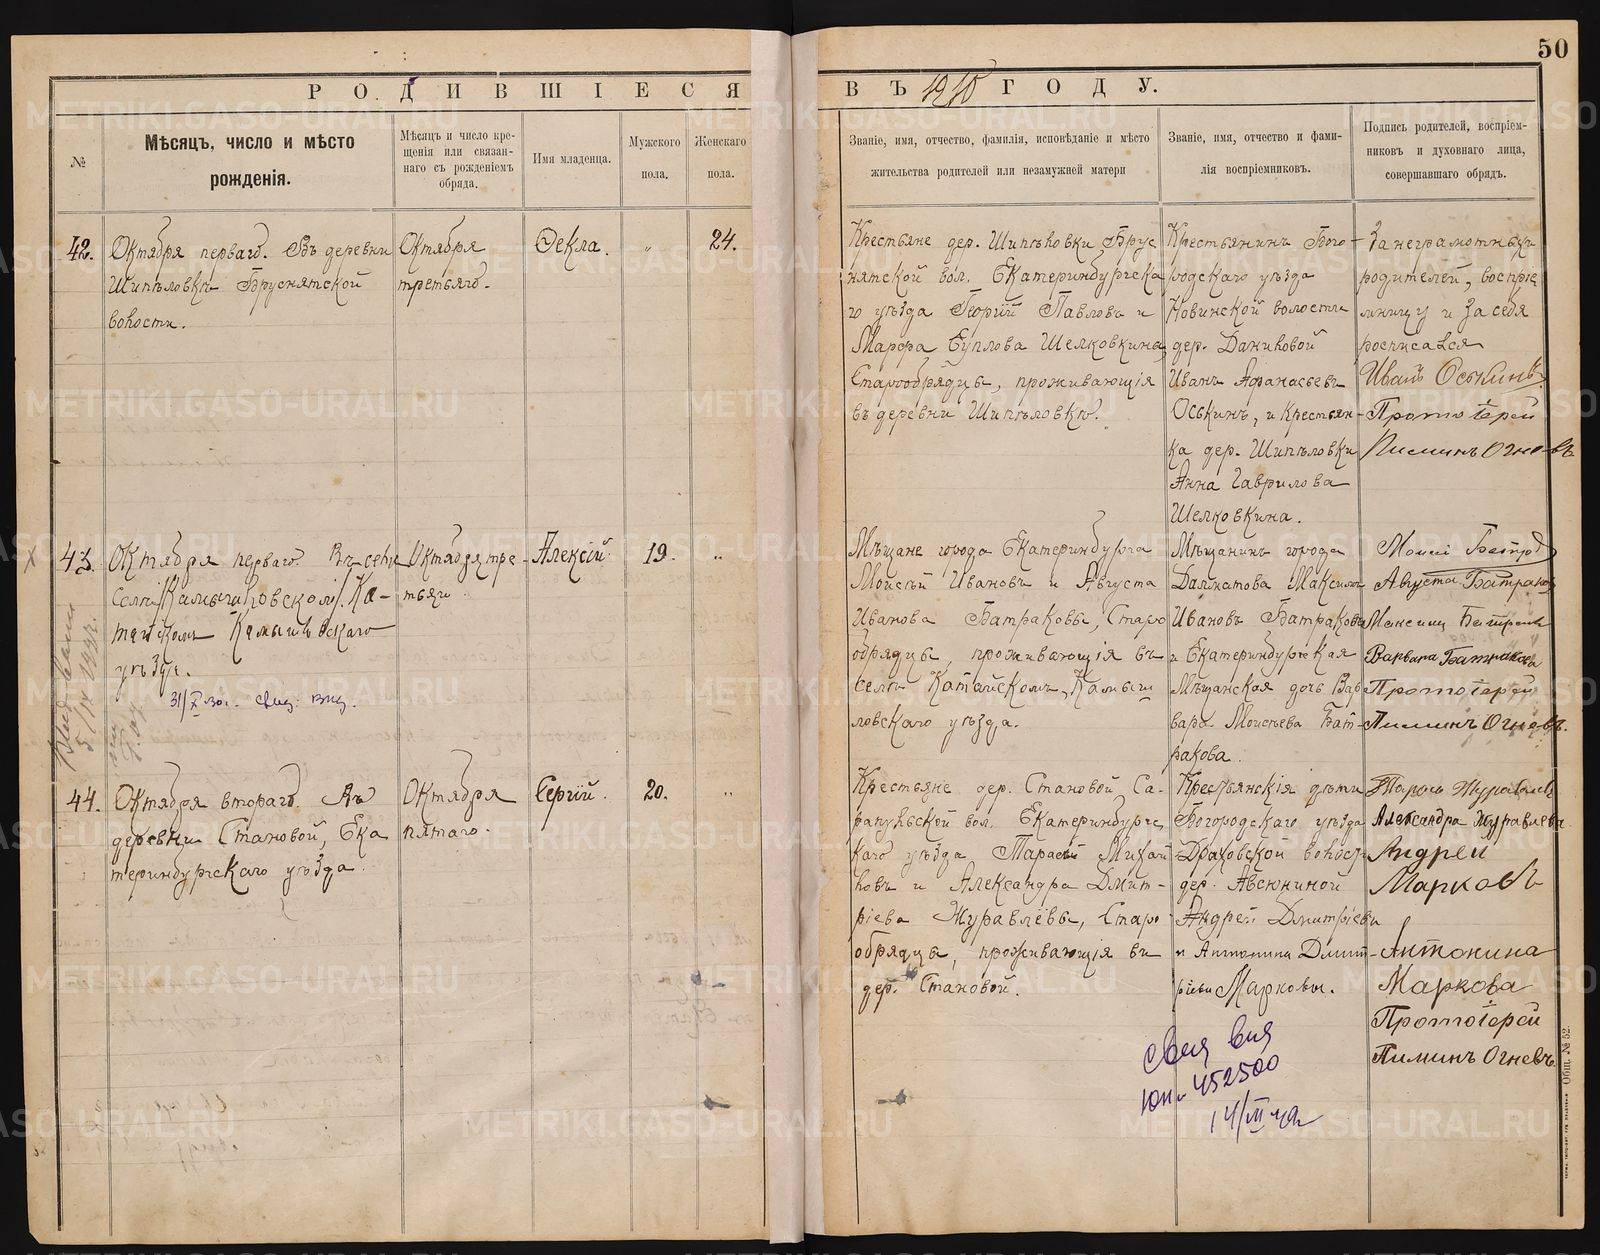 50
РОДИВШІЕСЯ
ВЪ 1910 ГОДУ.
№
Мѣсяцъ, число и мѣсто
рожденія.
Мѣсяцъ и число кре-
щенія или связан-
наго съ рожденіемъ
обряда.
Имя младенца.
Мужского
пола.
Женскаго
пола.
Званіе, имя, отчество, фамилія, исповѣданіе и мѣсто
жительства родителей или незамужней матери
Званіе, имя, отчество и фами-
лія воспріемниковъ.
Подпись родителей, воспріем-
никовъ и духовнаго лица,
совершавшаго обрядъ.
42.
Октября перваго. Въ деревни
Шипѣловкѣ Бруснятской
волости.
Октября
третьяго.
Ѳекла.
"
24.
Крестьяне дер. Шипѣловки Брус
нятской вол. Екатеринбургска
го уѣзда Георгій Павловъ и
Марфа Суплова Шелковкины
Старообрядцы, проживающія
въ деревни Шипѣловкѣ.
Крестьянинъ Бого-
родскаго уѣзда
Новинской волости
дер. Даниловой
Иванъ Афанасьевъ
Оськинъ, и Крестьян-
ка дер. Шипѣловки
Анна Гаврилова
Шелковкина.
За неграмотныхъ
родителей, воспріе
мницу и за себя
росписался
Иванъ Оськинъ
Протоіерей
Пиминъ Огневъ
43.
Октября перваго. Въ селѣ
Камышловскаго
уѣзда.
31/X 30г.
Октября тре-
тьяго.
Алексій.
19.
"
Мѣщане города Екатеринбурга
Моисѣй Ивановъ и Августа
Иванова Батраковы, Старо
обрядцы, проживающія въ
селѣ Катайскомъ, Камыш
ловскаго уѣзда.
Мѣщанинъ города
Далматова Максимъ
Ивановъ Батраковъ
и Екатеринбургская
Мѣщанская дочь Вар
вара Моисѣева Бат-
ракова.
Августа Батракова
Варвара Батракова
Протоіерей
Пиминъ Огневъ.
44.
Октября втораго. Въ
деревни Становой, Ека
теринбургскаго уѣзда.
Октября
пятаго.
Сергій.
20.
"
Крестьяне дер. Становой Са-
рапульской вол. Екатеринбургс
каго уѣзда Тарасій Михай
ловъ и Александра Дмит-
ріева Журавлёвы, Старо
обрядцы, проживающія въ
дер. Становой.
Крестьянскія дѣти
Богородскаго уѣзда
дер. Авсюниной
Андрей Дмитріевъ
и Антонина Дмит-
ріева Марковы.
Александра Журавлева
Андрей
Марковъ
Антонина
Маркова
Протоіерей
Пиминъ Огневъ
452500
Общ. № 52.
METRIKI.GASO-URAL.RU